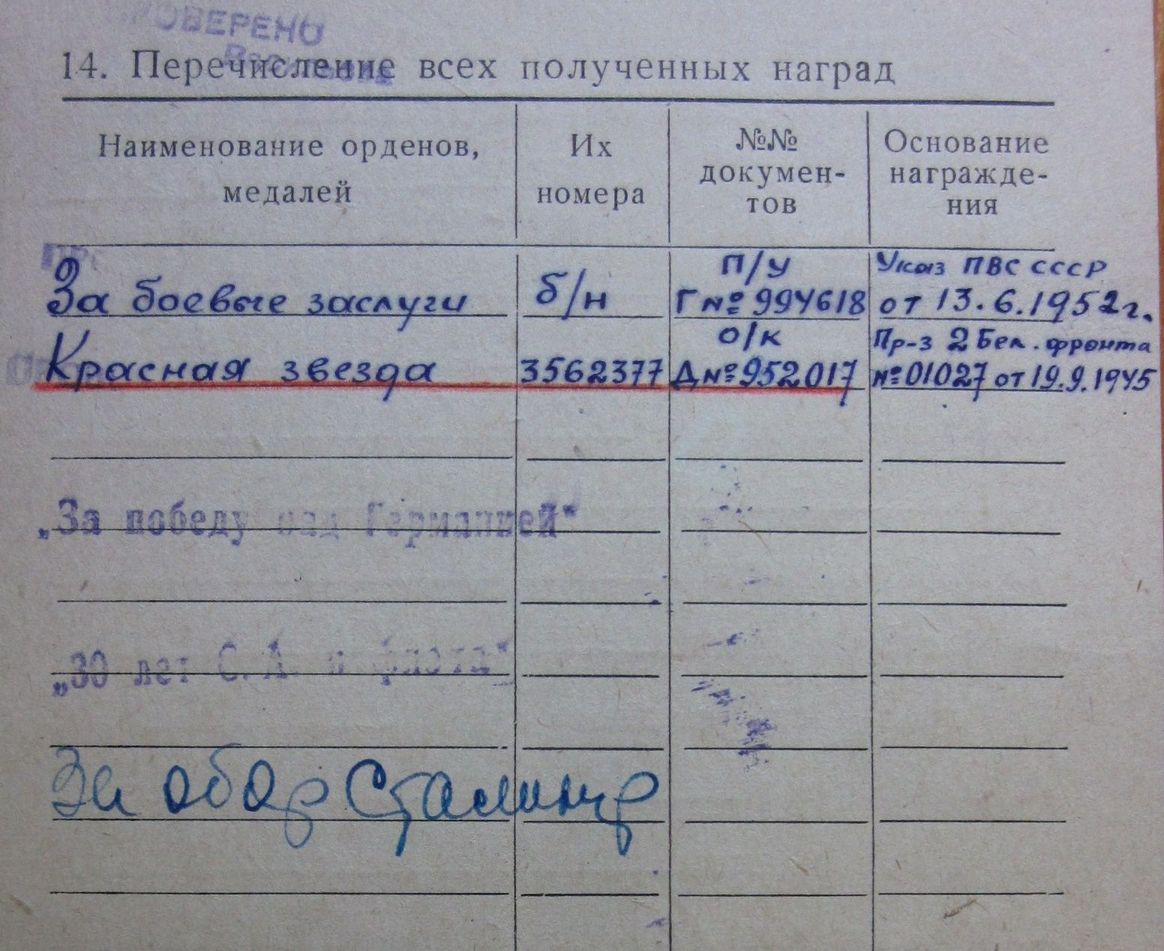 ПРОВЕРЕНО
14. Перечисление всех полученных наград
Наименование орденов, медалей
Их номера
№№ докумен-
тов
Основание
награжде-
ния
За боевые заслуги
б/н
П/У
Г № 994618
Указ ПВС СССР
от 13.6.1952г.
Красная звезда
3562377
О/К
Д № 952017
Пр-з 2 Бел. фронта
№ 01027 от 19.9.1945
„За победу над Германией“
„30 лет С. А. и флота“
За обор Сталингр